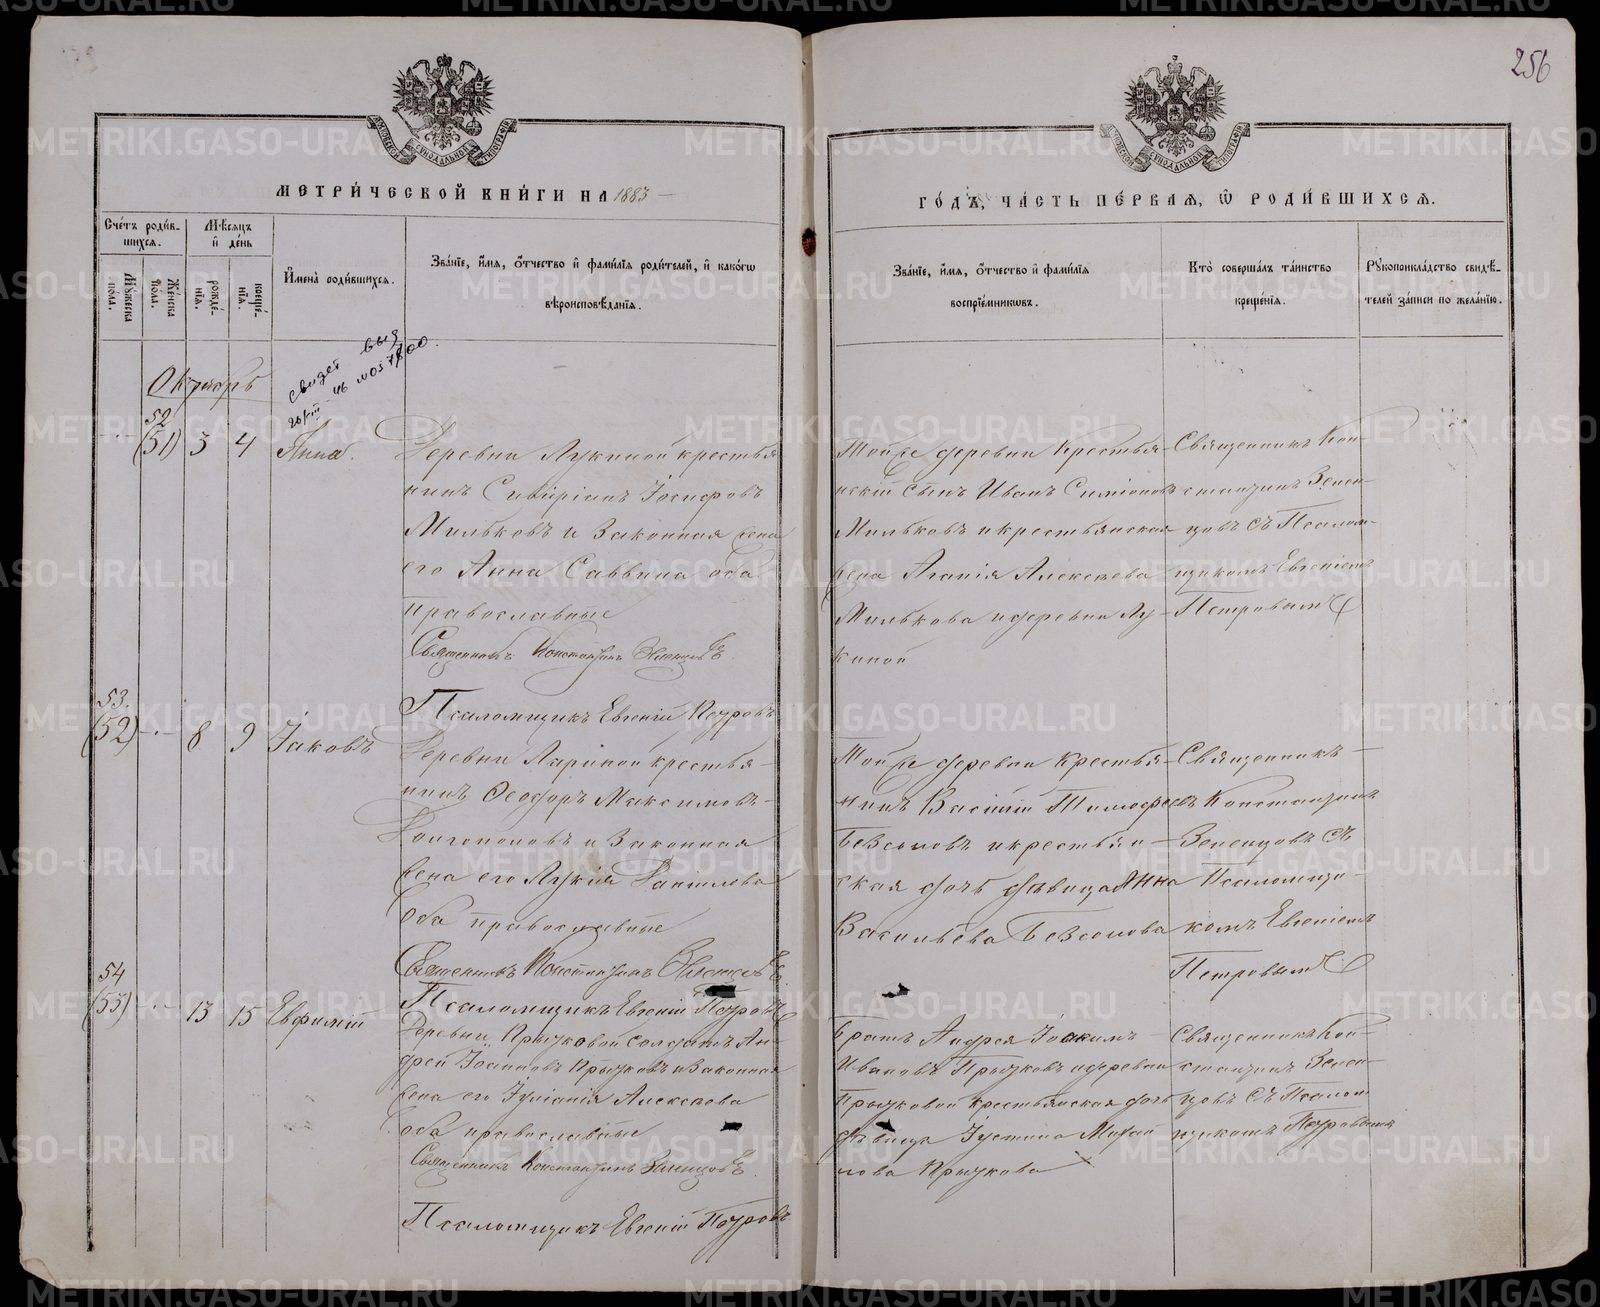 256
МЕТРИ́ЧЕСКОЙ КНИ́ГИ НА 1883
ГО́ДЪ, ЧА́СТЬ ПЕ́РВАЯ, Ѽ РОДИ́ВШИХСЯ.
Сче́тъ роди́в-
шихся.
Мѣсяцъ
и҆ де́нь
Мꙋ́жеска по́ла.
Же́нска по́ла.
рожде́нїя.
креще́нїя.
И҆мена̀ роди́вшихся.
Зва́нїе, и҆́мя, ѻ҆́тчество и҆ фами́лїя роди́телей, и҆ како́гѡ
вѣроисповѣ́данїя.
Зва́нїе, и҆́мя, ѻ҆́тчество и҆ фами́лїя
воспрїе́мникѡвъ.
Кто̀ соверша́лъ та́инство
креще́нїя.
Рꙋкоприкла́дство свидѣ́-
телей за́писи по жела́нїю.
Октябрь
52
(51) 3 4 Анна.
Деревни Лукиной крестья
нинъ Сиѵирїанъ Іосифовъ
Мильковъ и законная жена
его Анна Саввина оба
православные
Священникъ Константинъ
Псаломщикъ Евгеній Петровъ
Тойже деревни крестья-
нскій сынъ Иванъ Симіоновъ
Мильковъ и крестьянская
жена Агапія Алексѣева
Милькова и деревни Лу-
киной
Священникъ Кон-
стантинъ Зелен-
цовъ съ Псалом-
щикомъ Евгеніемъ
Петровымъ
53.
(52) 8 9 Іаковъ
Деревни Лариной крестья-
нинъ Ѳеодоръ Максимовъ-
Долгополовъ и законная
жена его Лукія Даніилова
Оба православные
Священникъ Константинъ
Псаломщикъ Евгеній Петровъ
Тойже деревни крестья-
нинъ Василій Тимофеевъ
Безсоновъ и крестьян-
ская дочь дѣвица Анна
Васильева Безсонова
Священникъ-
Константинъ
Зеленцовъ съ
Псаломщи-
комъ Евгеніемъ
Петровымъ
54
(53) 13 15 Евфимій
Деревни Прыжковой солдатъ Ан-
дрей Іоанновъ Прыжковъ и законная
жена его Іуліанія Алексѣева
оба православные
Священникъ Константинъ Зеленцовъ
Псаломщикъ Евгеній Петровъ
Братъ Андрея Іоакимъ
Ивановъ Прыжковъ и деревни
Прыжковой крестьянская дочь
дѣвица Іустина Михай
лова Прыжкова
Священникъ Кон-
стантинъ Зелен-
цовъ съ Псалом
щикомъ Петровымъ
METRIKI.GASO-URAL.RU